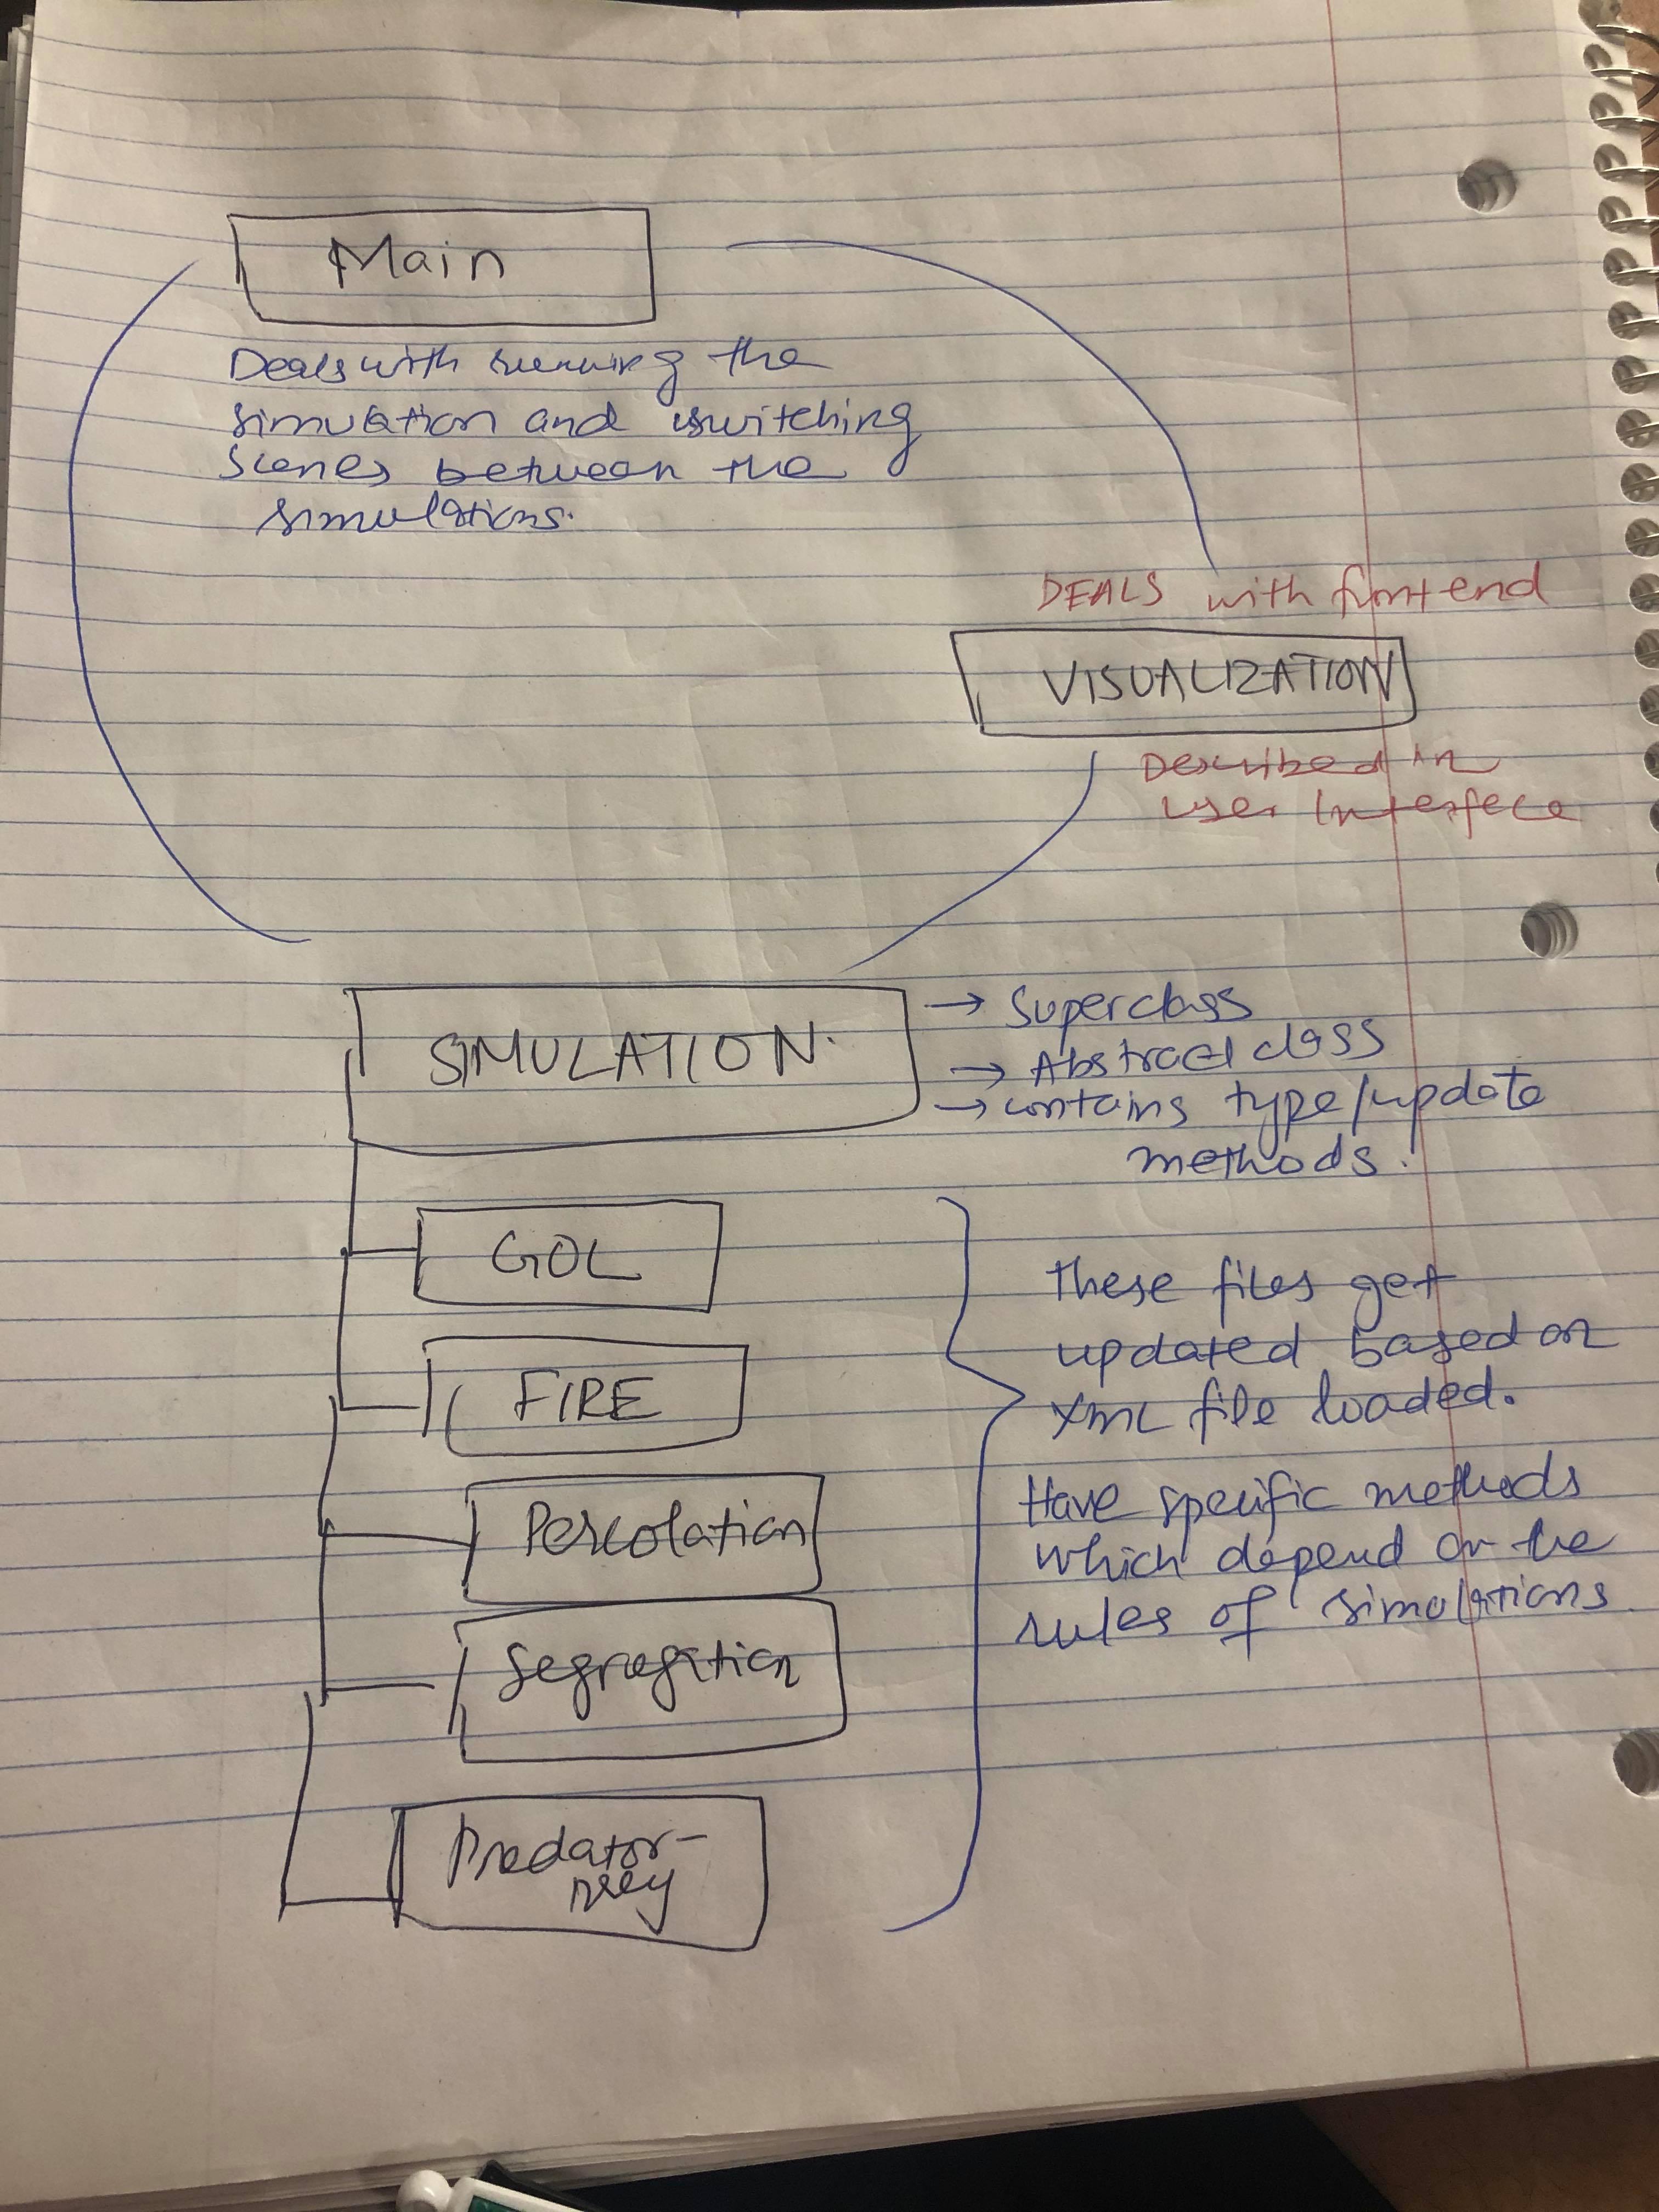 Main
Deals with running the
simulation and switching
scenes between the
simulations.
DEALS with frontend
VISUALIZATION
Described in
user Interface
SIMULATION.
→ Superclass
→ Abstract class
→ contains type/update
methods.
GOL
FIRE
Percolation
Segregation
Predator-
prey
These files get
updated based on
XML file loaded.
Have specific methods
which depend on the
rules of simulations